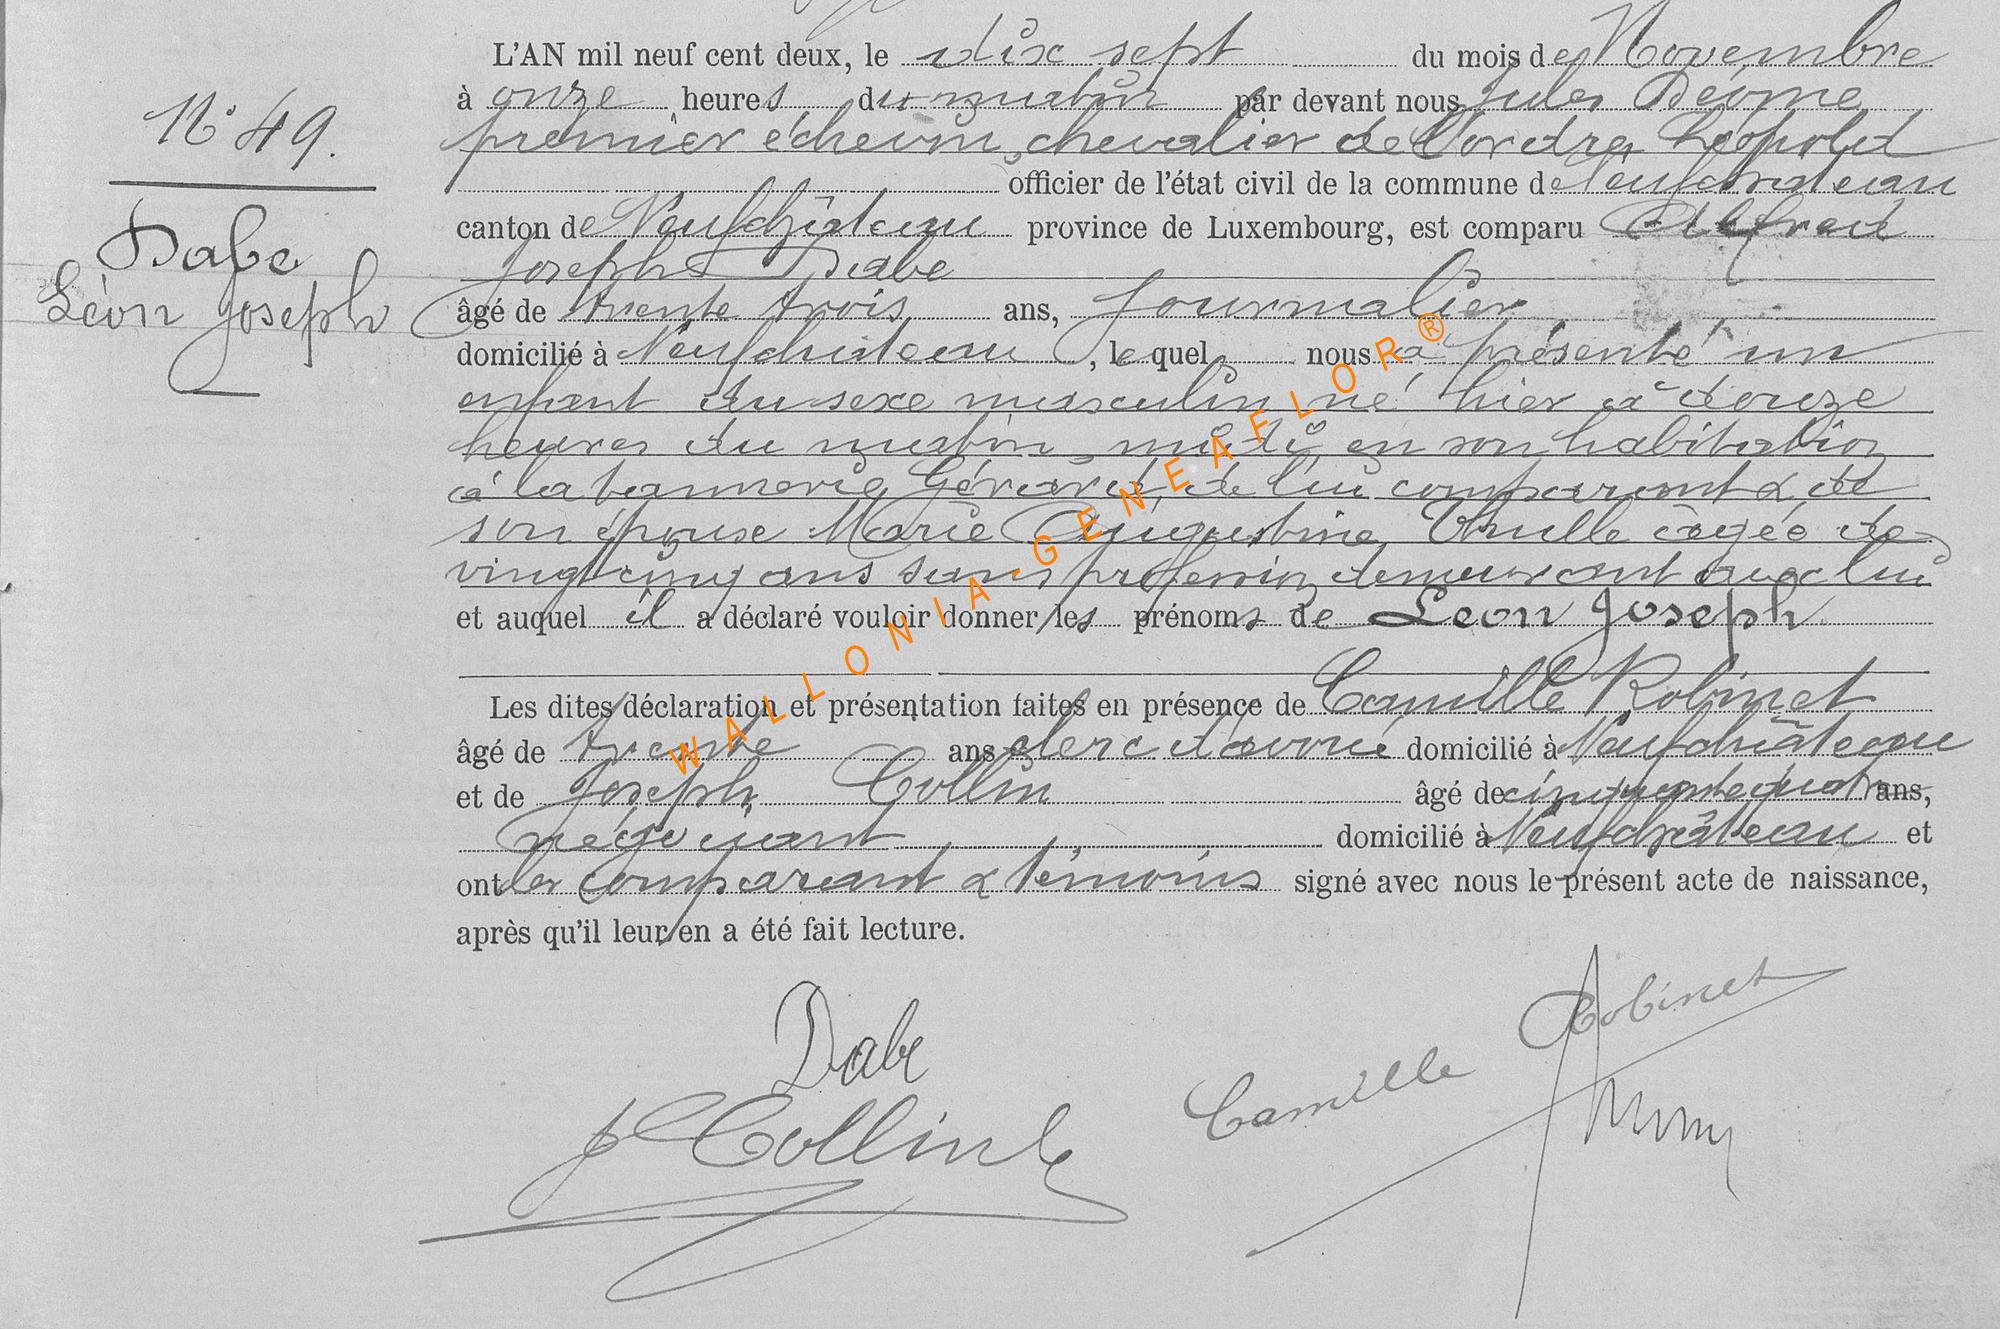 N° 49.
Dabe
Léon Joseph
L'AN mil neuf cent deux, le dix sept du mois de Novembre
à onze heures du matin par devant nous Jules
premier échevin, chevalier de l'ordre Léopold
officier de l'état civil de la commune de Neufchateau
canton de Neufchâteau province de Luxembourg, est comparu Alfred
Joseph Dabe
âgé de trente trois ans, journalier
domicilié à Neufchateau, lequel nous a présenté un
enfant du sexe masculin né hier à douze
heures du matin, midi, en son habitation
à la tannerie Gérard, de lui comparant & de
son épouse Marie Augustine âgée de
vingt cinq ans sans profession demeurant avec lui
et auquel il a déclaré vouloir donner les prénoms de Léon Joseph.
Les dites déclaration et présentation faites en présence de Camille Robinet
âgé de trente ans clerc d'avoué domicilié à Neufchâteau
et de Joseph Collin âgé de cinquante quatre ans,
négociant domicilié à Neufchâteau et
ont les comparant & témoins signé avec nous le présent acte de naissance,
après qu'il leur en a été fait lecture.
Dabe
Camille Robinet
J Collin
WALLONIA-GENEAFLOR®